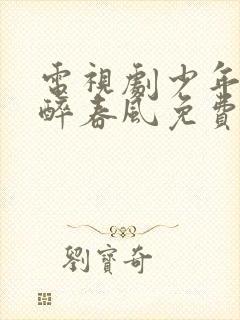 電視劇少年
醉春風免費
劉寶奇